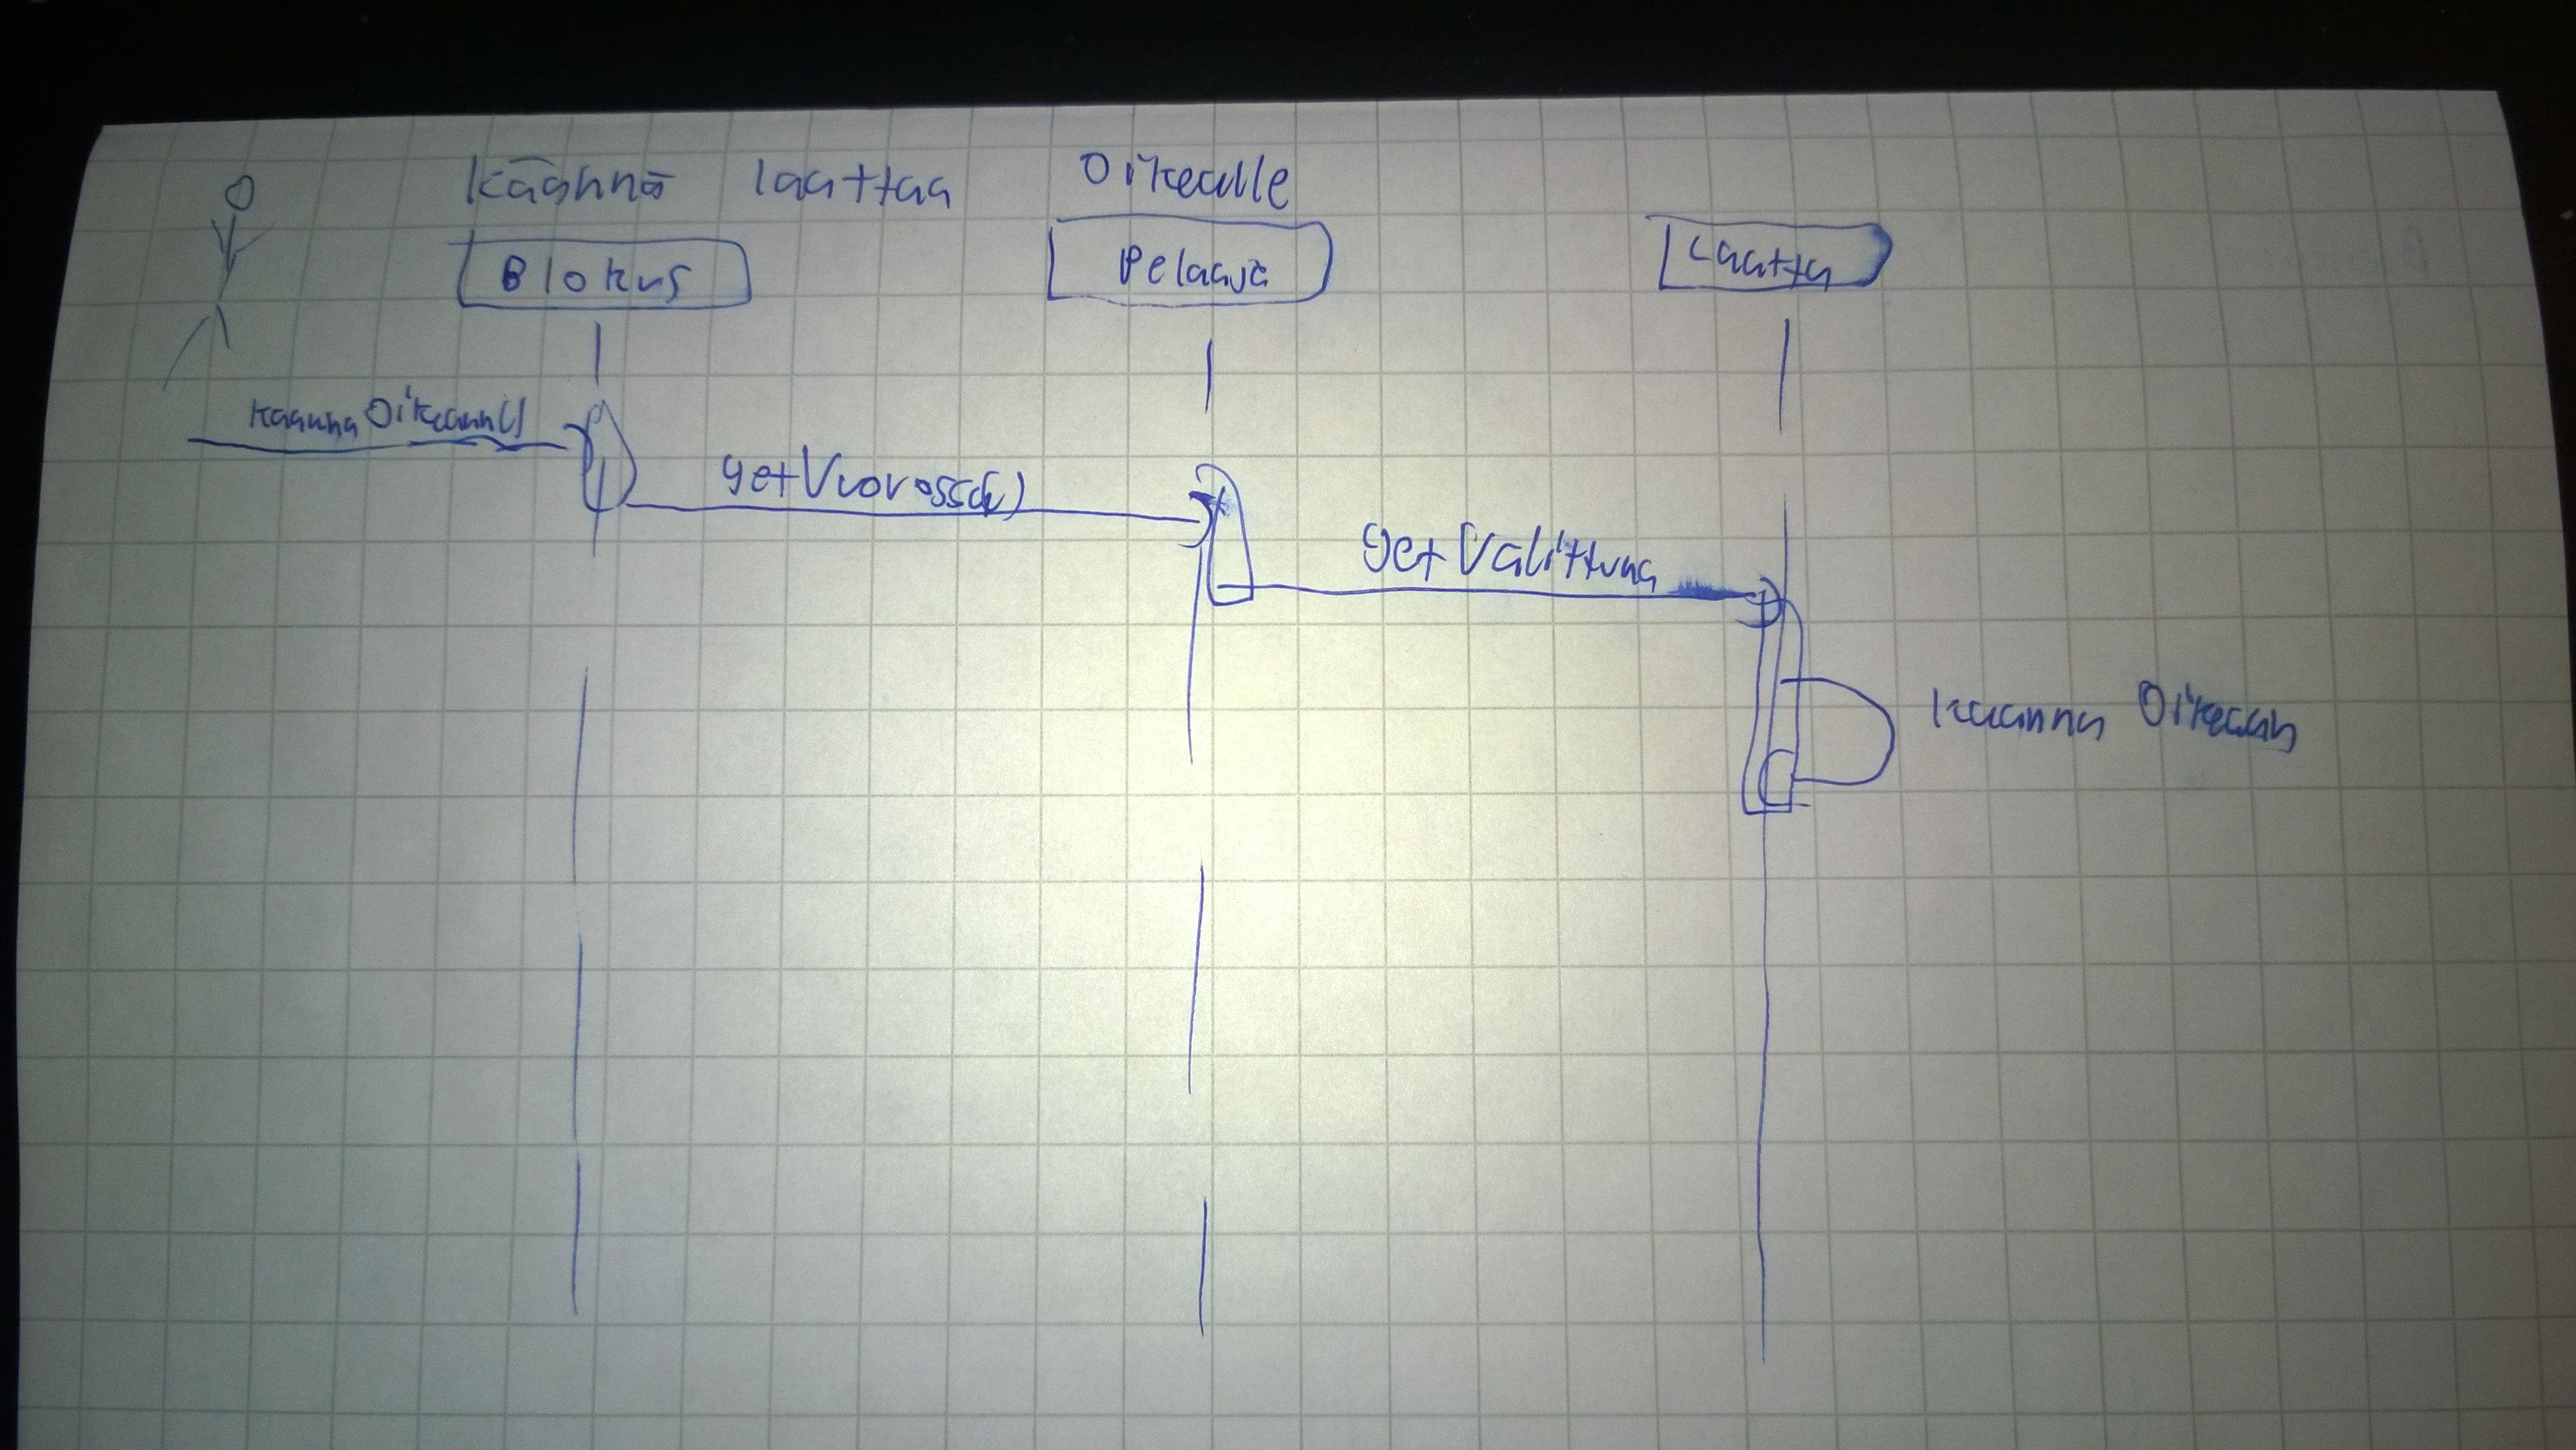 Käännä laattaa Oikealle
Blokus
Pelaaja
Laatta
kaannaOikeaan()
getVuorossa()
getValittuna
kaanna Oikeaan